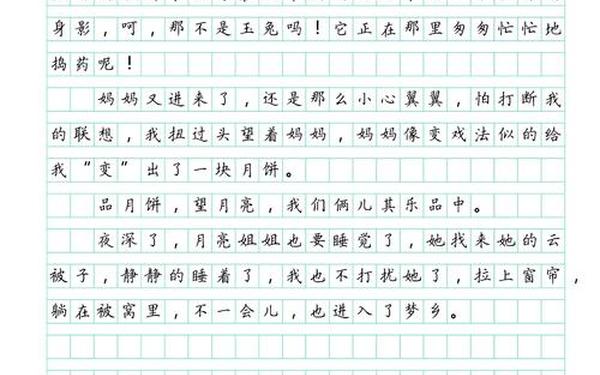 身影，呵，那不是玉兔吗！它正在那里匆匆忙忙地
捣药呢！
妈妈又进来了，还是那么小心翼翼，怕打断我
的联想，我扭过头望着妈妈，妈妈像变戏法似的给
我“变”出了一块月饼。
品月饼，望月亮，我们俩儿其乐品中。
夜深了，月亮姐姐也要睡觉了，她找来她的云
被子，静静的睡着了，我也不打扰她了，拉上窗帘，
躺在被窝里，不一会儿，也进入了梦乡。